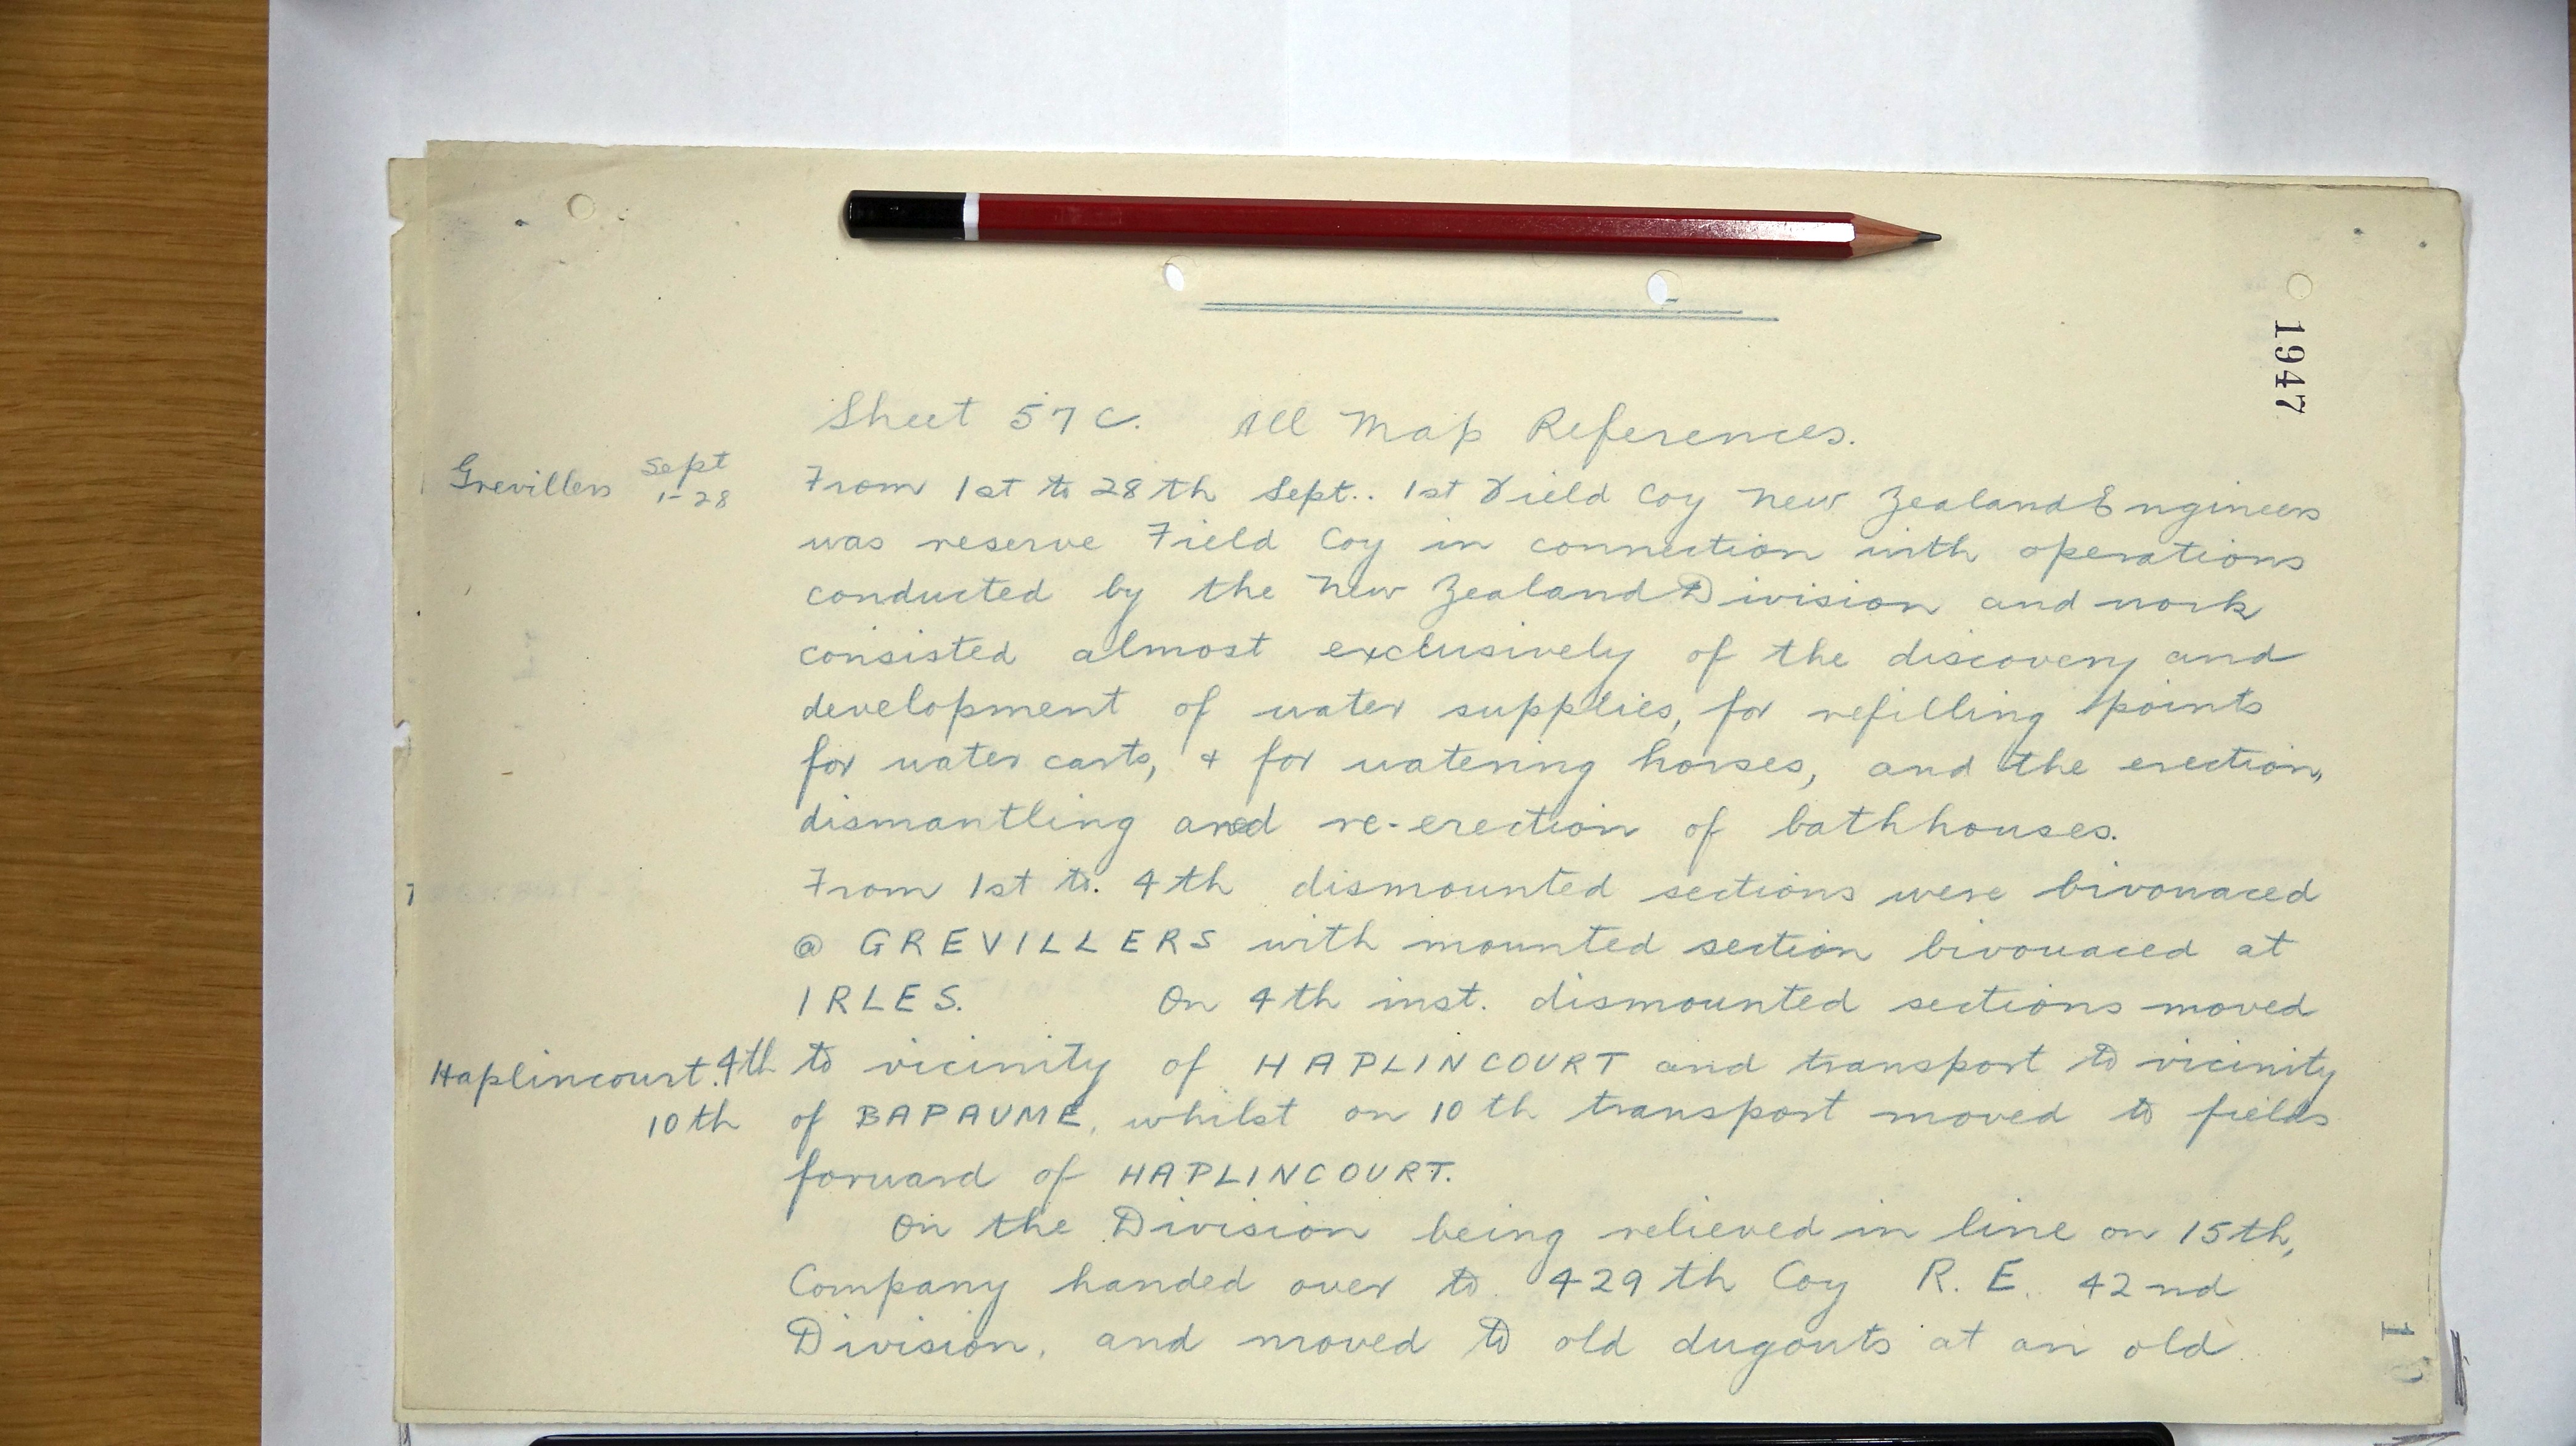 1947
Sheet 57C. All Map References.
Grevillers Sept 1-28 From 1st to 28th Sept.. 1st Field Coy New Zealand Engineers
was reserve Field Coy in connection with operations
conducted by the New Zealand Division and work
consisted almost exclusively of the discovery and
development of water supplies, for refilling points
for water carts, + for watering horses, and the erection,
dismantling and re-erection of bathhouses.
From 1st to. 4th dismounted sections were bivouaced
@ GREVILLERS with mounted section bivouaced at
IRLES. On 4th inst. dismounted sections moved
Haplincourt. 4th to vicinity of HAPLINCOURT and transport to vicinity
10th of BAPAUME, whilst on 10th transport moved to fields
forward of HAPLINCOURT.
On the Division being relieved in line on 15th,
Company handed over to 429th Coy R.E. 42nd
Division, and moved to old dugouts at an old
1